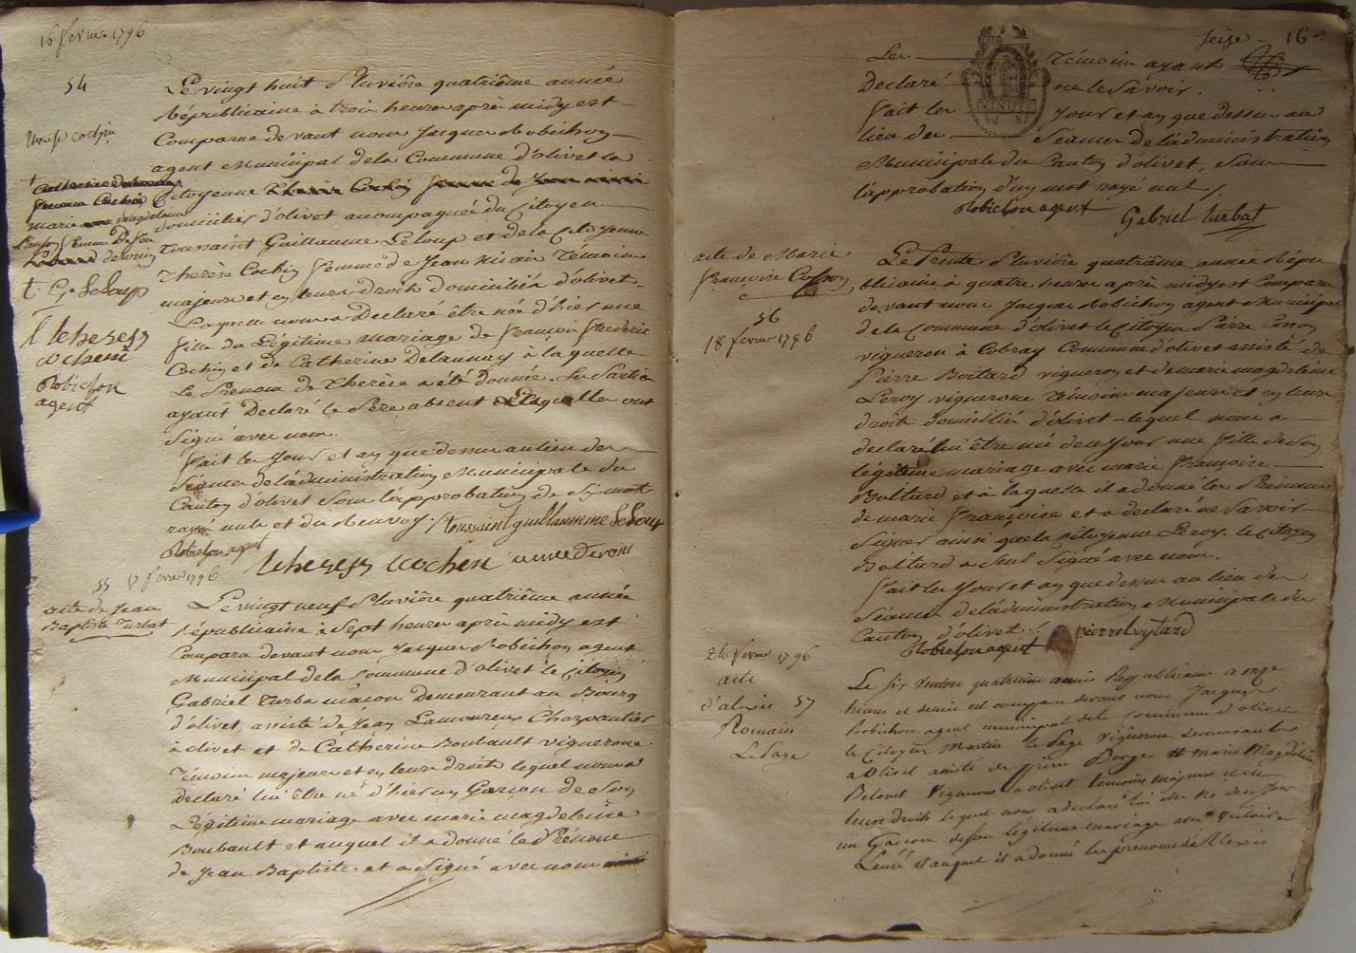 16 février 1796
54
Therese cochin
Le vingt huit Pluviôse quatrième année
républicaine à trois heures après midy est
Comparue devant nous Jacques Robichon
agent Municipal de la Commune d'olivet la
Citoyenne
domiciliée d'olivet accompagnée du Citoyen
Toussaint Guillaume Leloup et de la Citoyenne
Therèse Cochin femme de Jean Témoins
majeurs et en leurs droits Domiciliés d'olivet
Laquelle nous a Declaré être née d'hier une
fille du Légitime mariage de François
Cochin et de Catherine Delaunay à laquelle
Le Prénom de Therèse a été donnée. Les Parties
ayant Declaré le Père absent et Laquelle ont
Signé avec nous
fait les Jour et an que dessus au lieu des
Séances de l'administration Municipale du
Canton d'olivet Sous l'approbation de Six mots
rayé nuls et du Renvoy. toussaint guillaumme Leloup
Robichon agent
theresse cochin
marie magdelaine
femme
t G. Leloup
theresse
cochin
Robichon
agent
55 17 février 1796
acte de Jean
Baptiste Turbat
Le vingt neuf Pluviôse quatrième année
républicaine à Sept heures après midy est
Comparu devant nous Jacques Robichon agent
Municipal de la Commune d'olivet le Citoyen
Gabriel Turba macon Demeurant au Bourg
d'olivet, assisté de Jean Lamoureux Charpentier
à olivet et de Catherine Boubault vigneronne
Témoins majeurs et en leurs droits lequel nous a
Declaré lui être né d'hier un Garcon de Son
Légitime mariage avec marie magdeleine
Boubault et auquel il a donné les Prénoms
de Jean Baptiste et a Signé avec nous
seize 16
Les Témoins ayant
Declaré ne le Savoir.
fait les Jour et an que dessus au
lieu des Séances de l'administration
Municipale du Canton d'olivet, Sous
l'approbation d'un mot rayé nul
Robichon agent
Gabriel turbat
acte de Marie
françoise Cosson
56
18 février 1796
Le Trente Pluviôse quatrième année Répu
blicaine à quatre heures après midy est Comparu
devant nous Jacques Robichon agent Municipal
de la Commune d'olivet le Citoyen Pierre Cosson
vigneron à Commune d'olivet assisté de
Pierre Boitard vigneron et de marie magdeleine
Leroy vigneronne témoins majeurs et en leurs
droits domiciliés d'olivet lequel nous a
declaré lui être né de ce Jour une fille de Son
légitime mariage avec marie françoise
et à laquelle il a donné les Prénoms
de marie françoise et a declaré ne Savoir
Signer ainsi que la citoyenne Leroy. le Citoyen
a Seul Signé avec nous.
fait les Jour et an que dessus au lieu des
Séances de l'administration Municipale du
Canton d'olivet.
Robichon agent
24 février 1796
acte
d'alexis 57
Romain
LeSage
Le Six Ventose quatrieme année Republicaine a onze
heures et demie est comparu devant nous Jacques
Robichon agent municipal de la commune d'olivet
le Citoyen Martin le Sage Vigneron demeurant
a Olivet assisté de pierre et marie Magdeleine
Vignerons a olivet temoins majeurs et en
leurs droits lequel nous a declaré lui etre né de ce Jour
un Garcon de son légitime mariage avec
et auquel il a donné les prenoms de Alexis